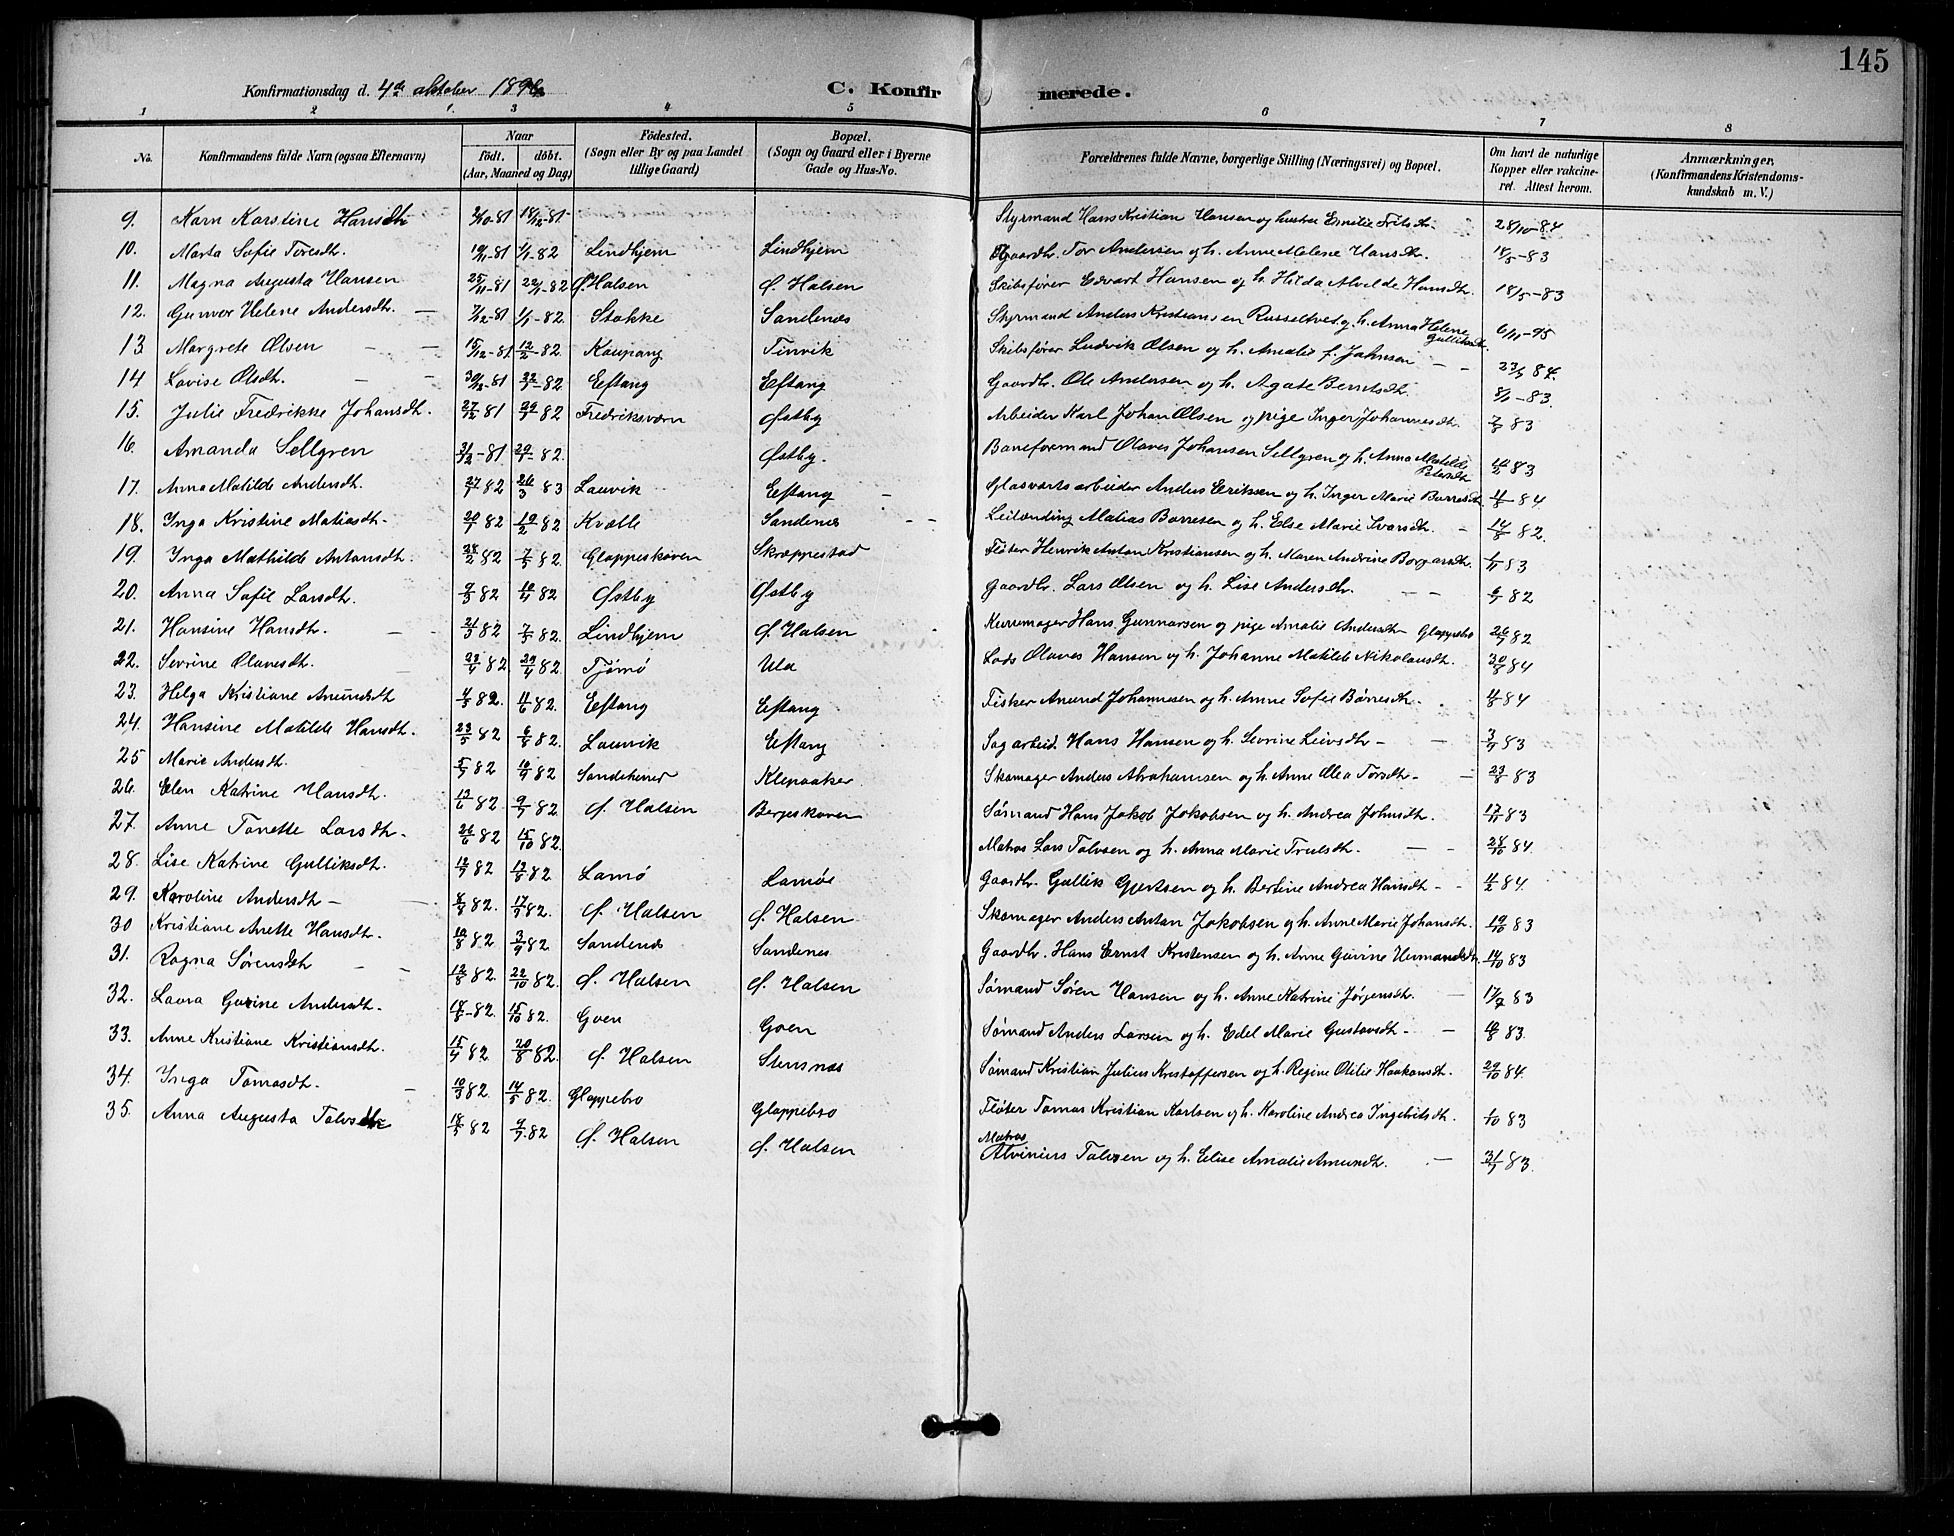 145
Konfirmationsdag d. 4de oktober 1896
C. Konfirmerede.
1 2 3 4 5 6 7 8
No.
Konfirmandens fulde Navn (ogsaa Efternavn)
Naar
födt. döbt.
(Aar, Maaned og Dag)
Födested.
(Sogn eller By og paa Landet
tillige Gaard)
Bopæl.
(Sogn og Gaard eller i Byerne
Gade og Hus-No.
Forældrenes fulde Navne, borgerlige Stilling (Næringsvei) og Bopæl.
Om havt de naturlige
Kopper eller vakcine-
ret. Attest herom.
Anmærkninger,
(Konfirmandens Kristendoms-
kundskab m. V.)
9. Karn Karstine Hansdtr 2/10-81 18/12-81 Styrmand Hans Kristian Hansen og hustru Emilie 28/10-84
10. Marta Sofie Toresdtr. 19/11-81 1/1-82 Lindhjem Lindhjem Gaardbr. Tor Andersen og h. Anne Malene Hansdtr. 18/5-83
11. Magna Augusta Hansen 25/11-81 22/1-82 Ø. Halsen Ø. Halsen Skibsfører Edvart Hansen og h. Hilda Alvilde Hansdtr. 18/5-83
12. Gunvor Helene Andersdtr. 7/12-81 1/1-82. Stokke Sandenæs Styrmand Anders Kristiansen Russeltvet og h. Anna Helene Gulliksdtr. 6/11-95
13 Margrete Olsen 15/12-81 12/2-82. Kaupang Tinvik Skibsfører Ludvik Olsen og h. Amalie f. Johnsen 84.
14 Lovise Olsdtr. 30/12-81 22/1-82 Eftang Eftang Gaardbr. Ole Andersen og h. Agate Berntsdtr. 83.
15. Julie Fredrikke Johansdtr. 27/12 81 29/1 82 Fredriksværn Østby Arbeider Karl Johan Olsen og pige Inger Johannesdtr. 83
16. Amanda Sellgren 31/12-81 29/1-82. Østby. Baneformand Olaves Johansen Sellgren og h. Anna Matilde Petersdtr 83
17. Anna Matilde Andersdtr. 27/1 82 26/3 83 Lauvik Eftang Glasværksarbeider Anders Eriksen og h. Inger Marie Børresdtr 84.
18. Inga Kristine Matiasdtr. 20/1 82 19/2 82 Kvælle Sandenæs Leilending Matias Børresen og h. Else Marie Ivarsdtr. 82.
19. Inga Mathilde Antonsdtr. 28/2 82 7/5 82. Gloppeskoven Skræppestad Fløter Henrik Anton Kristiansen og h. Maren Andrine Borgarsdtr. 83
20. Anna Sofie Larsdtr. 9/3 82 82 Østby Østby Gaardbr. Lars Olsen og h. Lise Andersdtr. 82
21. Hansine Hansdtr. 21/3 82 7/5 82. Lindhjem Ø. Halsen Kurvmager Hans Gunnarsen og pige Amalie Andersdtr Gloppebro 26/7 82
22. Sevrine Olavesdtr. 82 82. Tjømø Ula Lods Olaves Hansen og h. Johanne Matilde Nikolausdtr. 84
23. Helga Kristiane Anundsdtr 4/5 82. 4/6 82. Eftang Eftang Fisker Anund Johannesen og h. Anne Sofie Børresdtr. 84
24. Hansine Matilde Hansdtr. 23/5 82 6/8 82. Lauvik Eftang Sagarbeid. Hans Hansen og h. Sevrine Leivsdtr 83
25 Marie Andersdtr. 5/7 82 82 Sandehered Klepaaker Skomager Anders Abrahamsen og h. Anne Olea Torsdtr 83
26. Elen Katrine Hansdtr. 13/6 82. 9/7 82. Ø. Halsen Bergeskoven Sømand Hans Jakob Jakobsen og h. Andrea Johnsdtr. 83
27. Anne Tonette Larsdtr. 26/6 82 15/10 82. Matros Lars Tolvsen og h. Anna Marie Trulsdtr. 28/10 84.
28. Lise Katrine Gulliksdtr. 82 82 Lamø Lamøe Gaardbr. Gullik Gjertsen og h. Bertine Andrea Hansdtr 84.
29. Karoline Andersdtr 82. 17/9 82. Ø. Halsen Ø. Halsen Skomager Anders Anton Jakobsen og h. Anne Marie Johansdtr. 19/10 83
30 Kristiane Anette Hansdtr. 10/8 82 3/9 82 Sandenæs Sandenes Gaardbr. Hans Ernst Kristensen og h. Anne Gurine Hermandsdtr. 14/10 83
31. Ragna Sørensdtr 12/8 82 22/10 82. Ø. Halsen Ø. Halsen Sømand Sören Hansen og h. Anne Katrine Jørgensdtr. 83
32. Laura Gurine Andersdtr. 18/8-82 15/10 82. Goen Goen Sømand Anders Larsen og h. Edel Marie Gustavsdtr 83.
33. Anne Kristiane Kristiansdtr. 15/4 82 20/8 82. Ø. Halsen Stensnæs Sømand Kristian Julius Kristoffersen og h. Regine Otilie Haakonsdtr. 29/10 84.
34. Inga Tomasdtr. 10/3 82. 14/5 82. Gloppebro Gloppebro Fløter Tomas Kristian Karlsen og h. Karoline Andrea Ingebritsdtr. 1/10 83
35. Anna Augusta Tolvsdtr 18/5 82 9/7 82 Ø. Halsen Ø. Halsen Matros Alvinius Tolvsen og h. Elise Amalie Amundsdtr. 31/7 83.